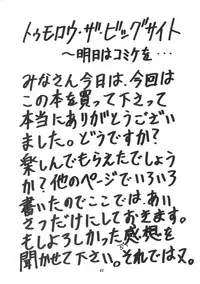 トゥモロウ・ザ・ビッグサイト
〜明日はコミケを・・・
みなさん今日は、今回は
この本を買って下さって
本当にありがとうござい
ました。どうですか?
楽しんでもらえたでしょう
か?他のページでいろいろ
書いたのでここでは、あい
さつだけにしておきます。
もしよろしかったら感想を
聞かせて下さい。それではヌ。